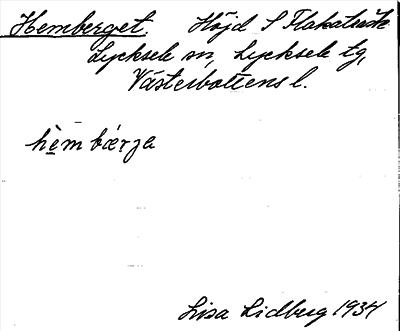 Hemberget. Höjd S Flakaträsk
Lycksele sn, Lycksele tg,
Västerbottens l.
hèm bærja
Lisa Lidberg 1934